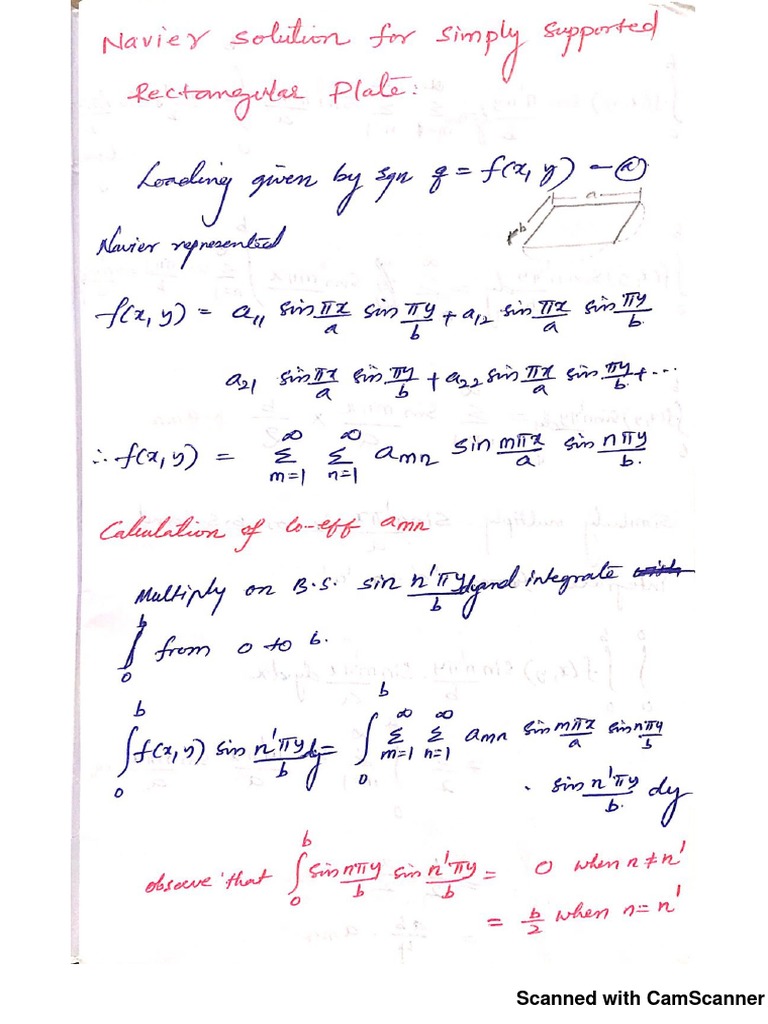 Navier solution for simply supported
Rectangular Plate:
Loading given by sqn q = f(x, y) — ⓐ
a
b
Navier represented
f(x, y) = a₁₁ sin πx/a sin πy/b + a₁₂ sin πx/a sin πy/b
a₂₁ sin πx/a sin πy/b + a₂₂ sin πx/a sin πy/b + ...
∴ f(x, y) = ∞Σm=1 ∞Σn=1 amn sin mπx/a sin nπy/b.
Calculation of co-eff amn
Multiply on B.S. sin n'πy/b dy and integrate
∫₀ᵇ from 0 to b.
∫₀ᵇ f(x, y) sin n'πy/b dy = ∫₀ᵇ ∞Σm=1 ∞Σn=1 amn sin mπx/a sin nπy/b
. sin n'πy/b. dy
observe that ∫₀ᵇ sin nπy/b sin n'πy/b = 0 when n ≠ n'
= b/2 when n = n'
Scanned with CamScanner